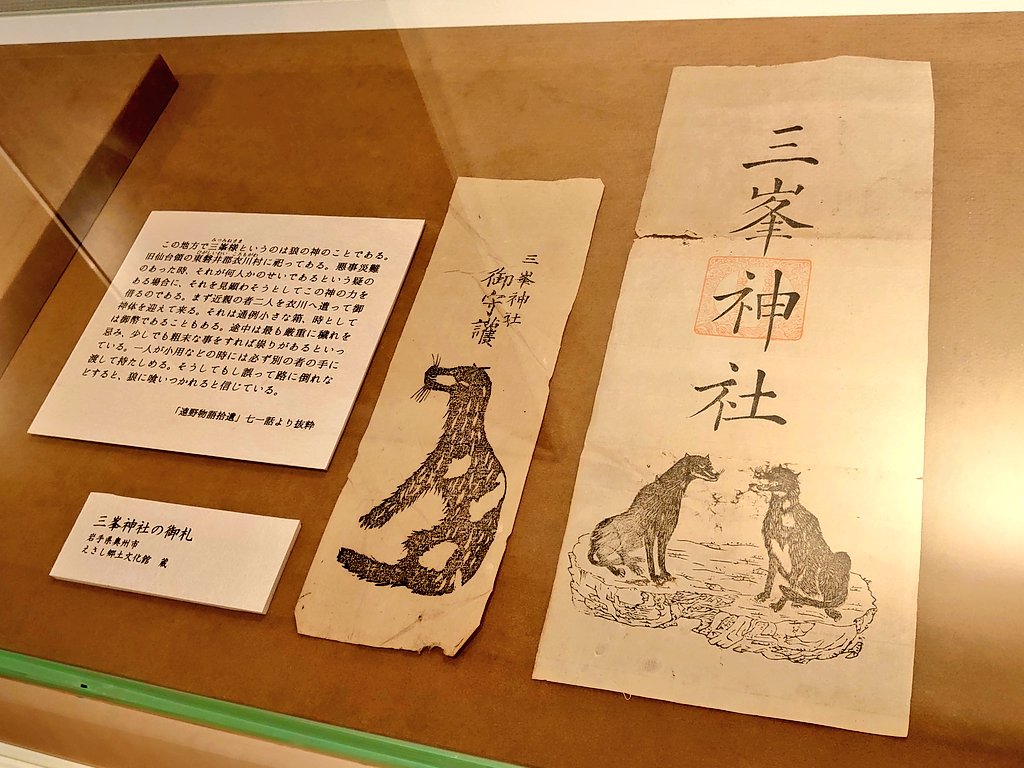 この地方で三峯様というのは狼の神のことである。
旧仙台領の東磐井郡衣川村に祀ってある。悪事災難
のあった時、それが何人かのせいであるという疑の
ある場合に、それを見顕わそうとしてこの神の力を
借るのである。まず近親の者二人を衣川へ遣って御
神体を迎えて来る。それは通例小さな箱、時として
は御幣であることもある。途中は最も厳重に穢れを
忌み、少しでも粗末な事をすれば祟りがあるといっ
ている。一人が小用などの時には必ず別の者の手に
渡して持たしめる。そうしてもし誤って路に倒れな
どすると、狼に喰いつかれると信じている。
「遠野物語拾遺」七一話より抜粋
三峯神社の御札
岩手県奥州市
えさし郷土文化館　蔵
三峯神社
御守護
三峯神社